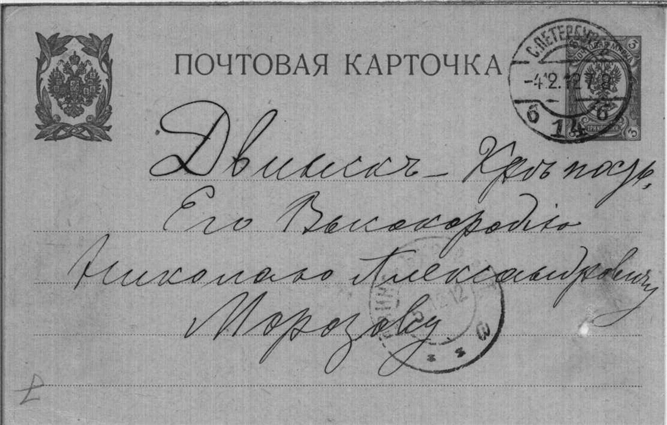 ПОЧТОВАЯ КАРТОЧКА
С.ПЕТЕРБУРГ
-4.12.12 7
б 14 б
3
3
Двинскъ - Крѣпость,
Его Высокородію
Николаю Александровичу
Морозову